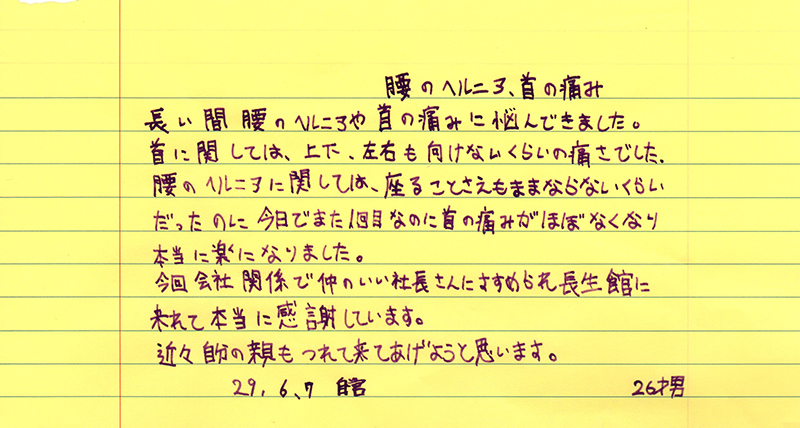 腰のヘルニア、首の痛み
長い間腰のヘルニアや首の痛みに悩んできました。
首に関しては、上下、左右も向けないくらいの痛さでした。
腰のヘルニアに関しては、座ることさえもままならないくらい
だったのに今日でまだ1回目なのに首の痛みがほぼなくなり
本当に楽になりました。
今回会社関係で仲のいい社長さんにすすめられ長生館に
来れて本当に感謝しています。
近々自分の親もつれて来てあげようと思います。
29.6、7 自営 26才男